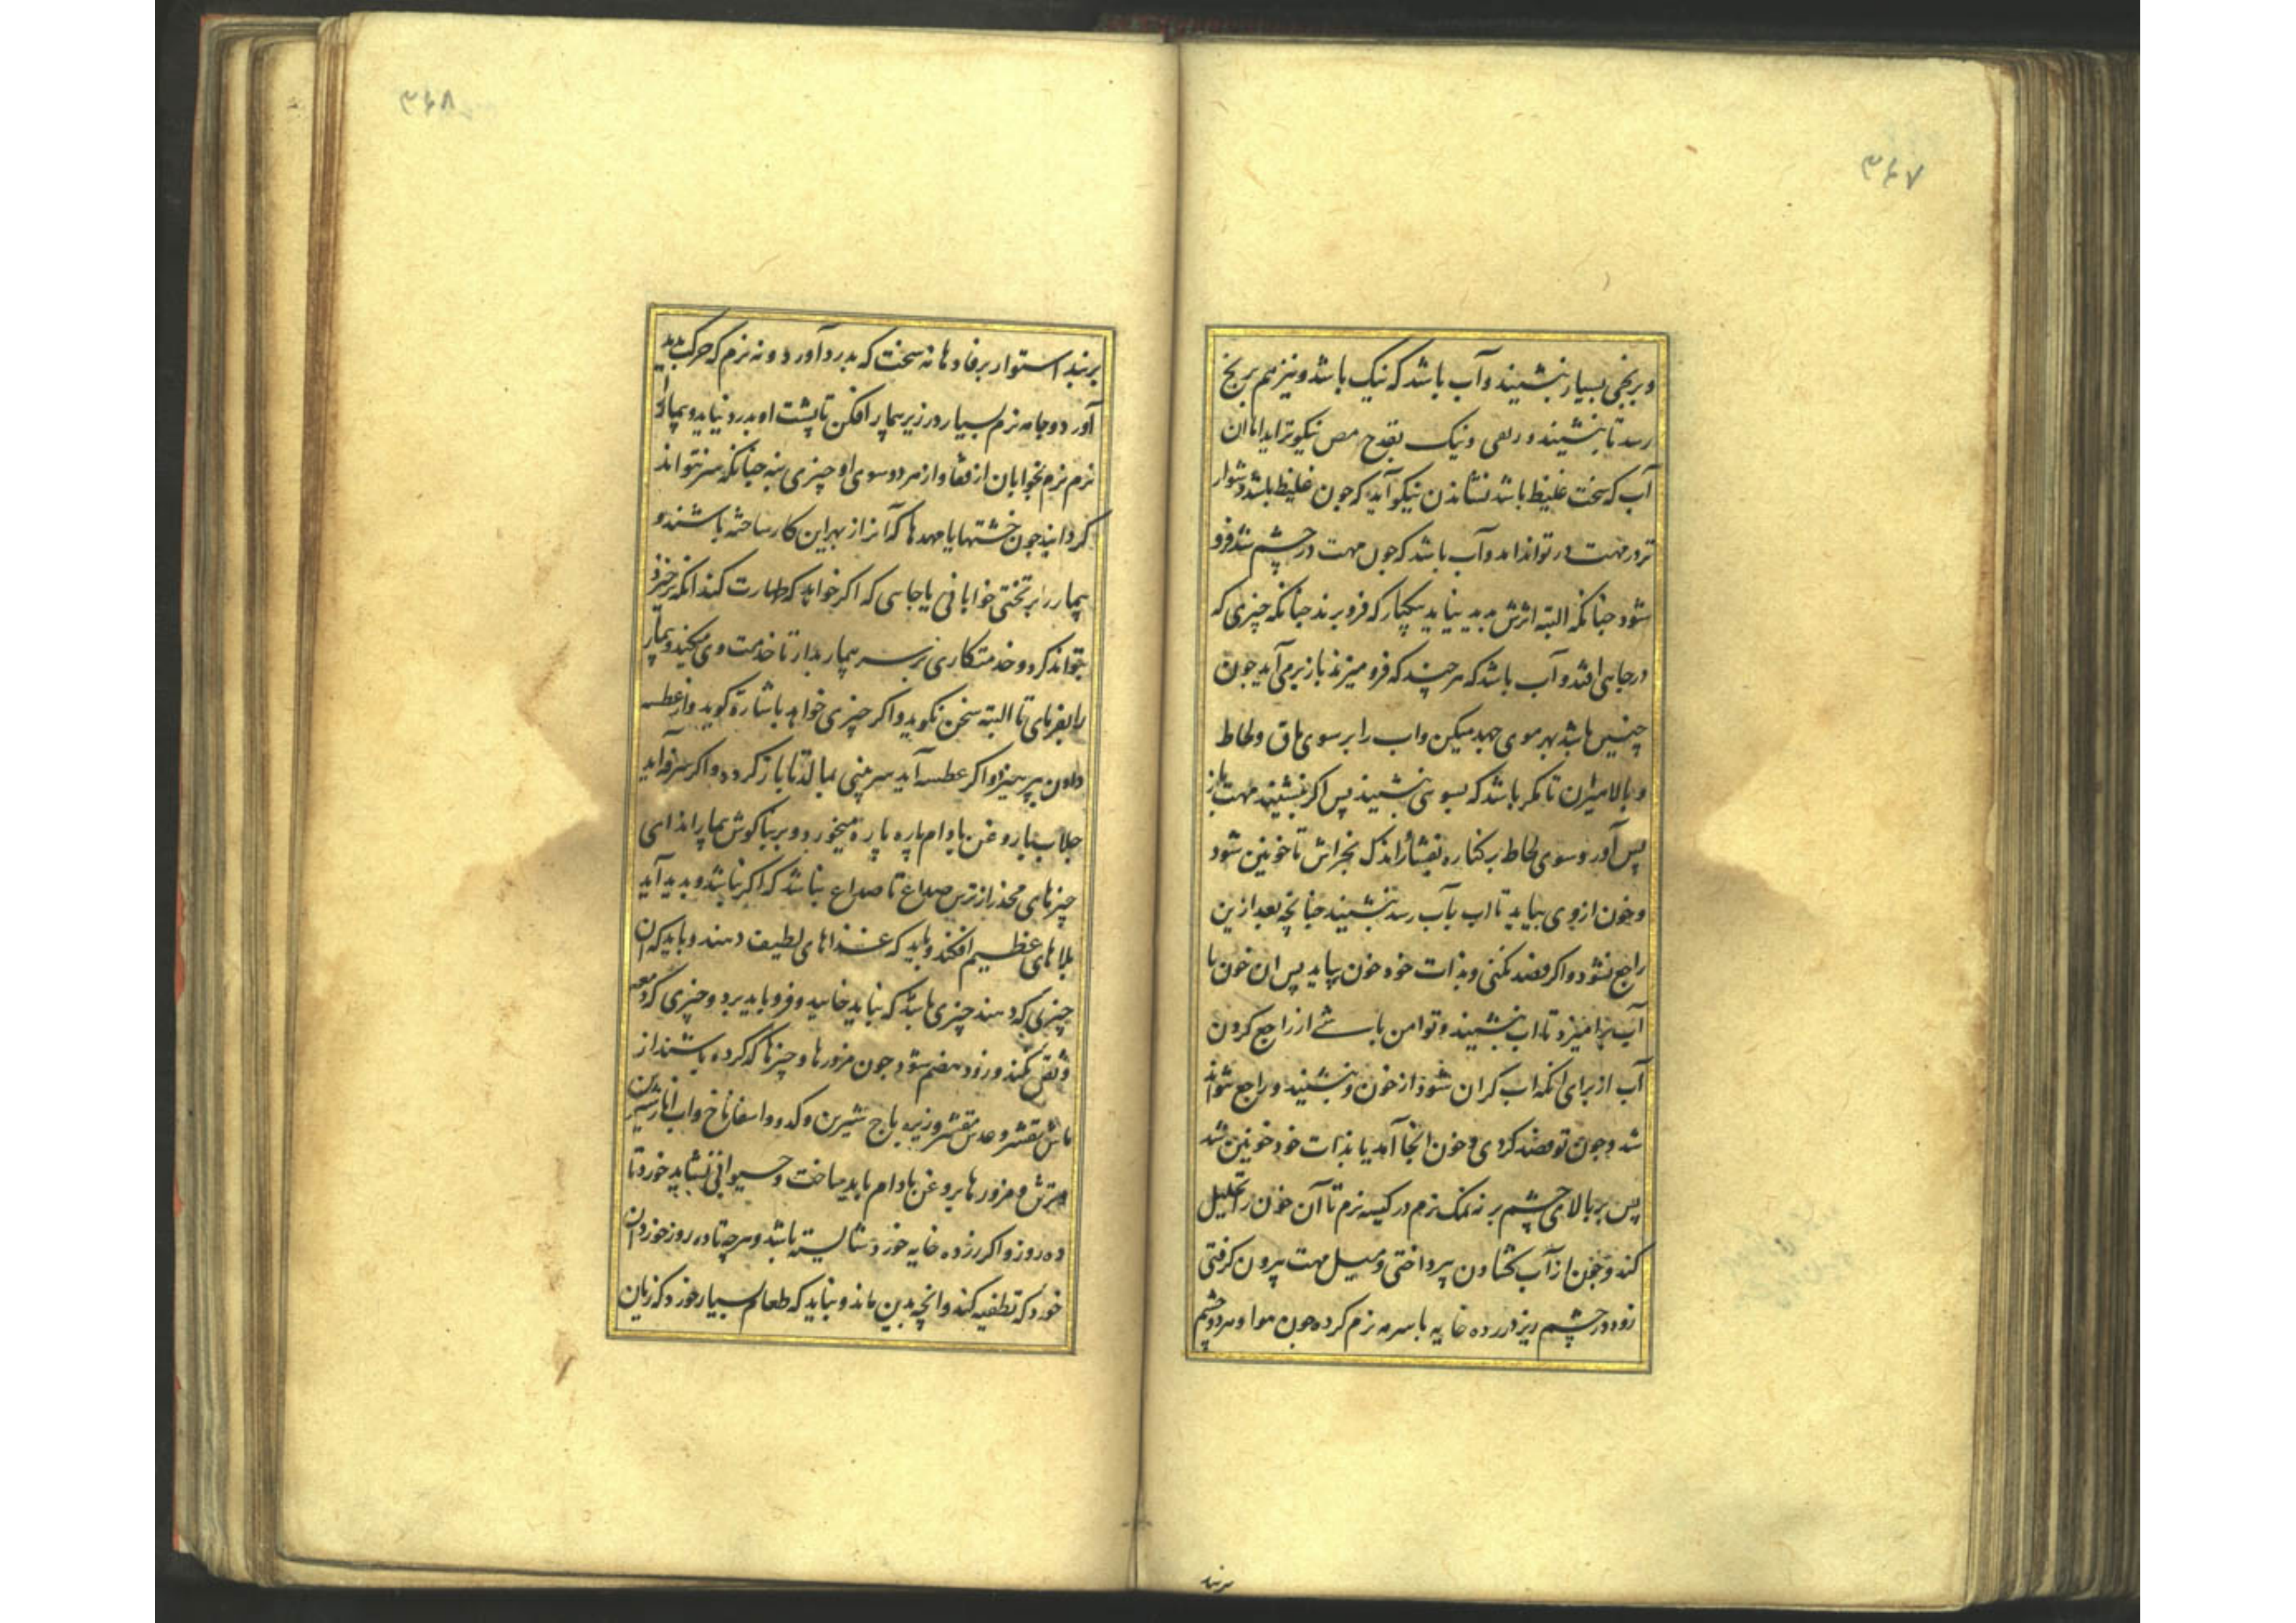 ۳۶۷
و برنجی بسیار بنشیند و آب باشد که نیک باشد و نیز هم برنج
رسد تا بنشیند و ونیک بقدح مص نیکوتر آید اما ان
آب که سخت غلیظ باشد نشاندن نیکو آید که جون غلیظ باشد دشوار
تر در مهت در تواند امد و آب باشد که جون مهت در چشم شد فرو
شود جنانکه البته اثرش بدید نیاید بیکبار که فرو برند جنانکه چیزی که
در جاهی افتد و آب باشد که هر چند که فرو میزند باز بر می آید جون
چنین باشد بهر سوی جهد میکن و اب را بر سوی ماق و لحاظ
و بالا میران تا مکر باشد که بسوئی بنشیند پس اکر ننشیند مهت باز
پس آور و سوی لحاظ بر کناره اندک بخراش تا خونین شود
و خون ازوی بیاید تا اب بآب رسد بنشیند جنانچه بعد ازین
راجع نشود و اکر قصد نکنی و بذات خود خون بیاید پس ان خون با
آب برامیزد تا اب بنشیند و تو امن باشی از راجع کردن
آب از برای انکه اب کران شود از خون و بنشیند و راجع نتواند
شد و جون تو قصد کردی و خون انجا آمد یا بذات خود خونین شد
پس بر بالای چشم بر نه نمک نرم در کیسه نرم تا آن خون را تحلیل
کند و جون از آب کشادن پرداختی و میل مهت بیرون کرفتی
زود در چشم ریز زرده خایه با سرمه نرم کرده جون هوا و هر دو چشم
بربند
۳۶۸
بربند استوار برفادها نه سخت که بدرد آورد و نه نرم که حرکت بدید
آورد و جامه نرم بسیار در زیر بیمار افکن تا پشت او بدرد نیاید و بیمار را
نرم نرم بخوابان از قفا و از هر دو سوی او چیزی بنه جنانکه سر نتواند
کردانید جون خشتها یا مهدها که آنرا از بهر این کار ساخته باشند و
بیمار را بر تختی خوابانی یا جایی که اکر خواهد که طهارت کند انکه برخیزد
بتواند کرد و خدمتکاری بر سر بیمار بدار تا خدمت وی میکند و بیمار
را بفرمای تا البته سخن نکوید و اکر چیزی خواهد باشارة کوید و از عطسه
دادن بپرهیزد و اکر عطسه آید سر بینی بمالد تا باز کردد و اکر سرفه آید
جلاب با روغن بادام پاره پاره میخورد و بر بناکوش بیمار اندایی
چیزهای مخدر از ترس صداع تا صداع نباشد که اکر باشد و بدید آید
بلاهای عظیم افکند و باید که غذاهای لطیف دهند و باید که ان
چیزی که دهند چیزی باشد که نباید خایید و فرو باید برد و چیزی که در معده
و ثقل نکند و زود هضم شود جون مزورها و چیزها که کرده باشند از
ماش مقشر و عدس مقشر و زیره باج شیرین و کدو و اسفاناخ و اب انار شیرین
و ترش و مزورها بروغن بادام باید ساخت و حیوانی نشاید خورد تا
ده روز و اکر زرده خایه خورد شایسته باشد و هرچه تا ده روز خورد ان
خورد که تطفیه کند و انچه بدین ماند و نباید که طعام بسیار خورد که زیان